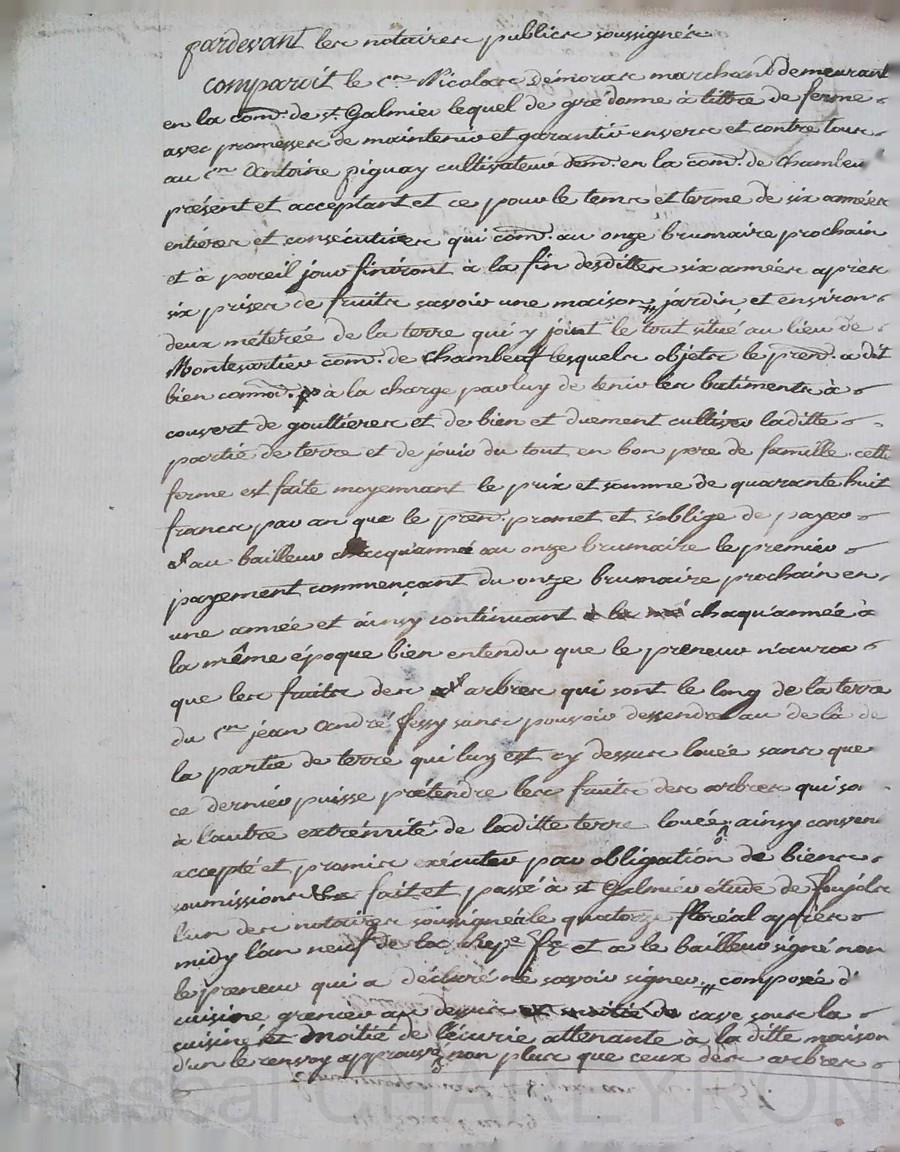 pardevant les notaires publics soussignés
comparoit le cen Nicolas Démoras marchand demeurant
en la com. de st. Galmier lequel de gré donne à tittre de ferme
avec promesses de maintenir et garantir envers et contre tous
au cen Antoine piguay cultivateur dem. en la com. de chambeu
présent et acceptant et ce pour le tems et terme de six années
entières et consécutives qui com. au onze brumaire prochain
et à pareil jour finiront à la fin desdittes six années après
six prises de fruits savoir une maison, jardin, et environ
deux méterée de la terre qui y joint le tout situé au lieu de
Montessartier com. de chambeuf lesquels objets le pren. a dit
bien connoi. à la charge par luy de tenir les batiments à
couvert de gouttieres et de bien et duement cultiver laditte
partie de terre et de jouir du tout en bon pere de famille. cette
ferme est faite moyennant le prix et somme de quarante huit
francs par an que le pren. promet et s'oblige de payer
au bailleur chacqu'année au onze brumaire le premier
payement commençant du onze brumaire prochain en
une année et ainsy continuant chaqu'année à
la même époque bien entendu que le preneur n'aura
que les fruits des arbres qui sont le long de la terre
du cen jean André fessy sans pouvoir dessendre au de là de
la partie de terre qui luy est cy dessus louée sans que
ce dernier puisse prétendre les fruits des arbres qui so
à l'autre extrémité de laditte terre louée, ainsy conven
accepté et promis exécuter par obligation de biens
soumissions fait et passé à st Galmier étude de foujols
l'un des notaires soussignés le quatorze floréal après
midy l'an neuf de la Rep. fse et a le bailleur signé non
le preneur qui a déclaré ne savoir signer, composée d'
cuisine grenier au dessus cave sous la
cuisine et moitié de l'écurie attenante à la ditte maison
d'un le renvoy approuvé non plus que ceux des arbres
Pascal CHARLEYRON